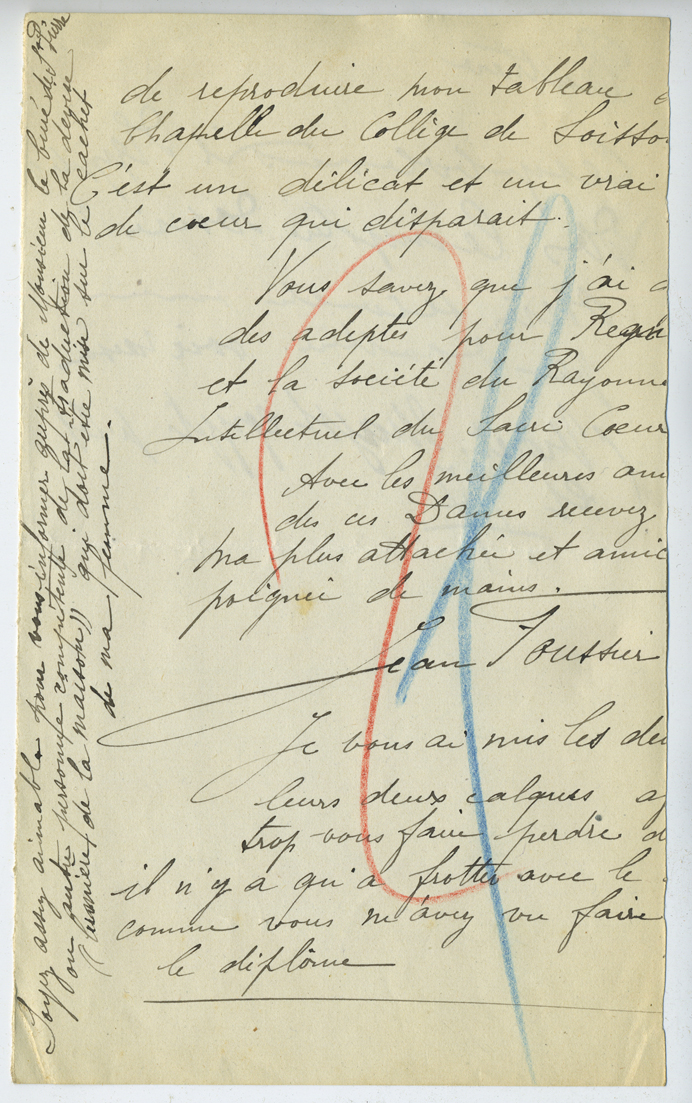 de reproduire mon tableau
Chapelle du Collège de Soisso
C'est un délicat et un vrai
de coeur qui disparait.
Vous savez que j'ai
des adeptes pour Regn
et la société du Rayonne
Intellectuel du Sacré Coeur
Avec les meilleures am
des ces Dames recevez
ma plus attachée et amic
poignée de mains.
Jean Toussier
Je vous ai mis les deu
leurs deux calques
trop vous faire perdre d
il n'y a qu'à frotter avec le
comme vous m'avez vu faire
le diplôme
Soyez assez aimable pour vous informer auprès de Monsieur le Curé de
ou autre personne compétente de la traduction de la devise
(lumière de la maison)) qui doit être mise sur le cachet
de ma femme.